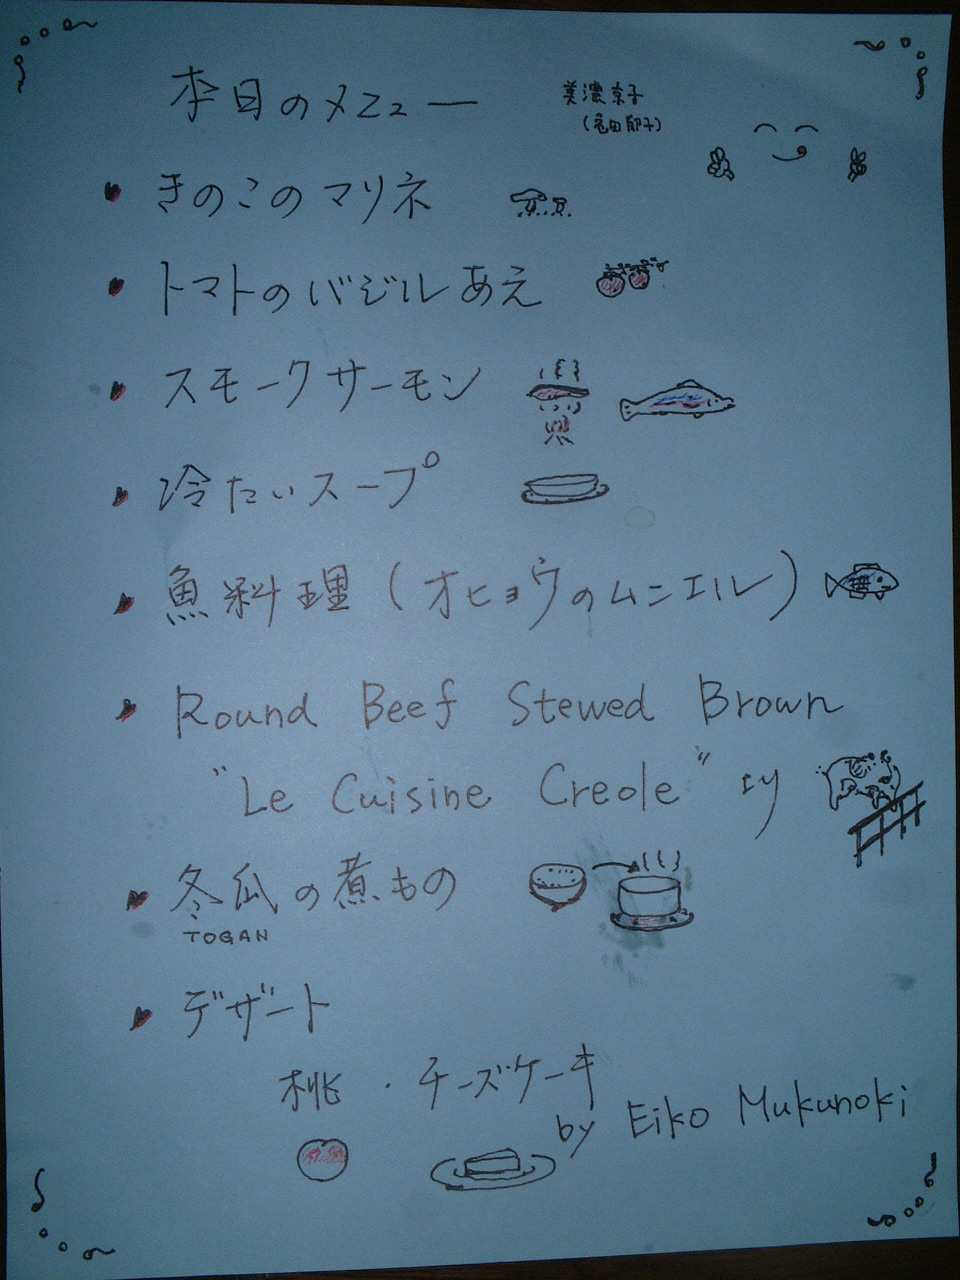 本日のメニュー
美濃京子
きのこのマリネ
トマトのバジルあえ
スモークサーモン
冷たいスープ
魚料理(オヒョウのムニエル)
Round Beef Stewed Brown
"Le Cuisine Creole" より
冬瓜の煮もの
TOGAN
デザート
桃・チーズケーキ
by Eiko Mukunoki